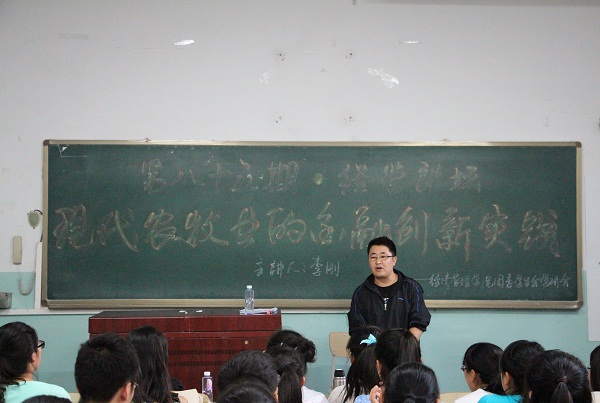 第八十五期·经管讲坛
现代农牧业的金融创新实践
主讲人 李刚
经济管理学院团委学生会宣